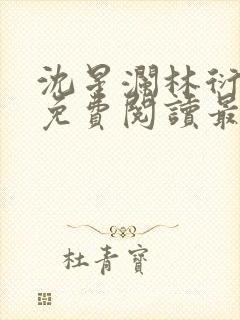 沈星瀾林衍
免費閱讀最
杜青寶